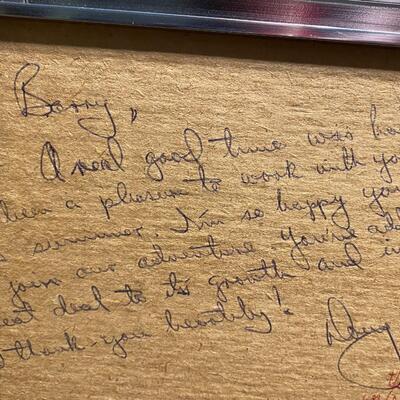 Barry,
A real good time was ha
been a pleasure to work with yo
s summer. I'm so happy you
join our adventure. You've add
eat deal to its growth and i
thank-you heartily!